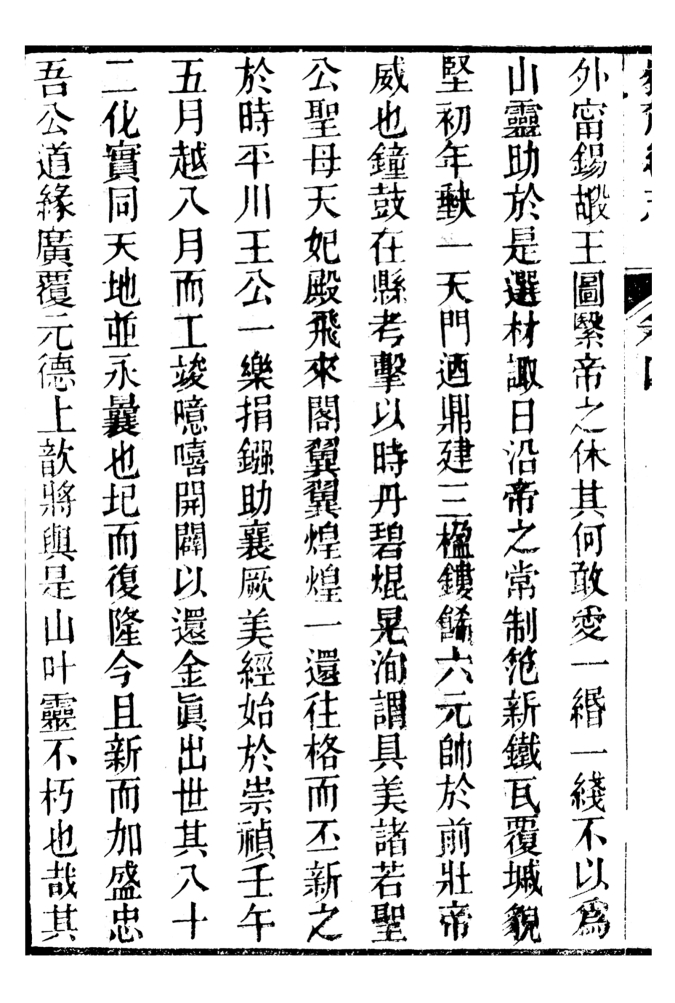 卷四
外甯錫嘏王圖緊帝之休其何敢愛一緡一綫不以爲
山靈助於是選材諏日沿帝之常制笵新鐵瓦覆墄貌
堅初年勒一天門迺鼎建三楹鏤餙六元帥於前壯帝
威也鐘鼓在縣考擊以時丹碧焜晃洵謂具美諸若聖
公聖母天妃殿飛來閣翼翼煌煌一還往格而丕新之
於時平川王公一樂捐鏹助襄厥美經始於崇禎壬午
五月越八月而工竣噫嘻開闢以還金眞出世其八十
二化實同天地並永曩也圮而復隆今且新而加盛忠
吾公道緣廣覆元德上歆將與是山叶靈不朽也哉其